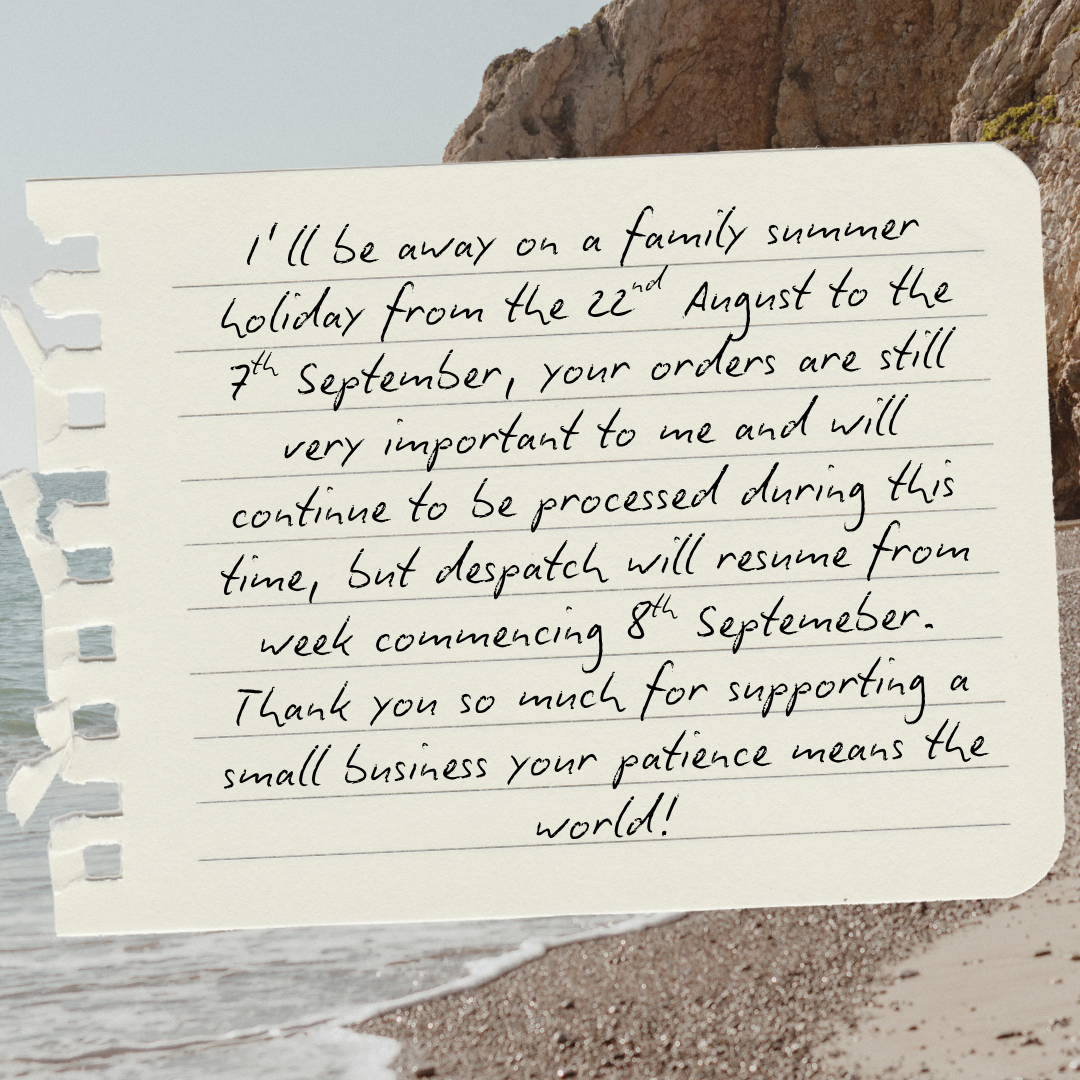 I'll be away on a family summer
holiday from the 22nd August to the
7th September, your orders are still
very important to me and will
continue to be processed during this
time, but despatch will resume from
week commencing 8th Septemeber.
Thank you so much for supporting a
small business your patience means the
world!